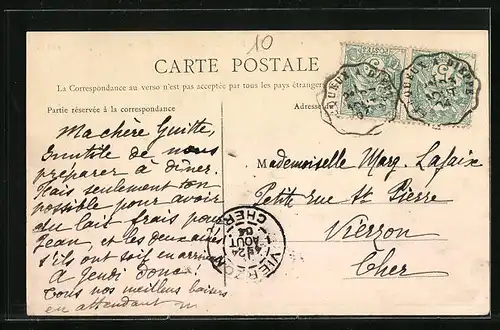 10
CARTE POSTALE
La Correspondance au verso n'est pas acceptée par tous les pays étrangers
Partie réservée à la correspondance
Adresse
Ma chère Guitte,
Inutile de nous
préparer à dîner.
Mais seulement ton
possible pour avoir
du lait frais pour
Jean, et les deux
s'ils ont soif en
A Jeudi donc!
Tous nos meilleurs baisers
en attendant
Mademoiselle Marg. Lafaix
Petite rue St Pierre
Vierzon
Cher
A DIEPPE
VIERZON
24
AOUT
04
CHER